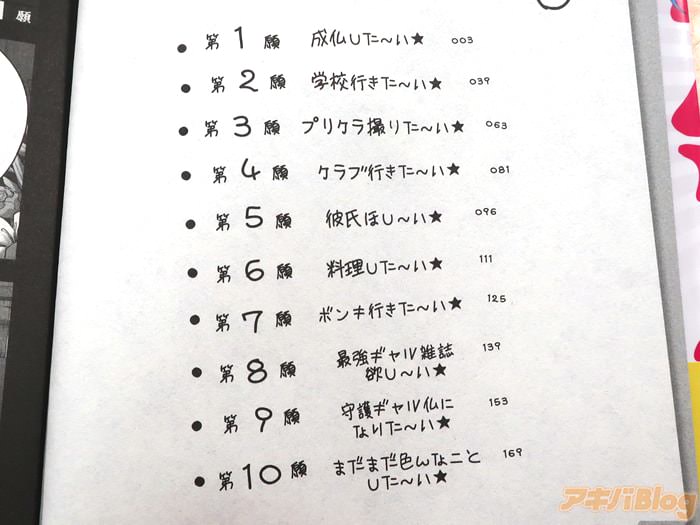 願
第1願 成仏した〜い★ 003
第2願 学校行きた〜い★ 039
第3願 プリケラ撮りた〜い★ 063
第4願 ケラブ行きた〜い★ 081
第5願 彼氏ほし〜い★ 096
第6願 料理した〜い★ 111
第7願 ボンキ行きた〜い★ 125
第8願 最強ギャル雑誌
欲し〜い★ 139
第9願 守護ギャル仏に
なりた〜い★ 153
第10願 まだまだ色んなこと
した〜い★ 169
アキバBlog